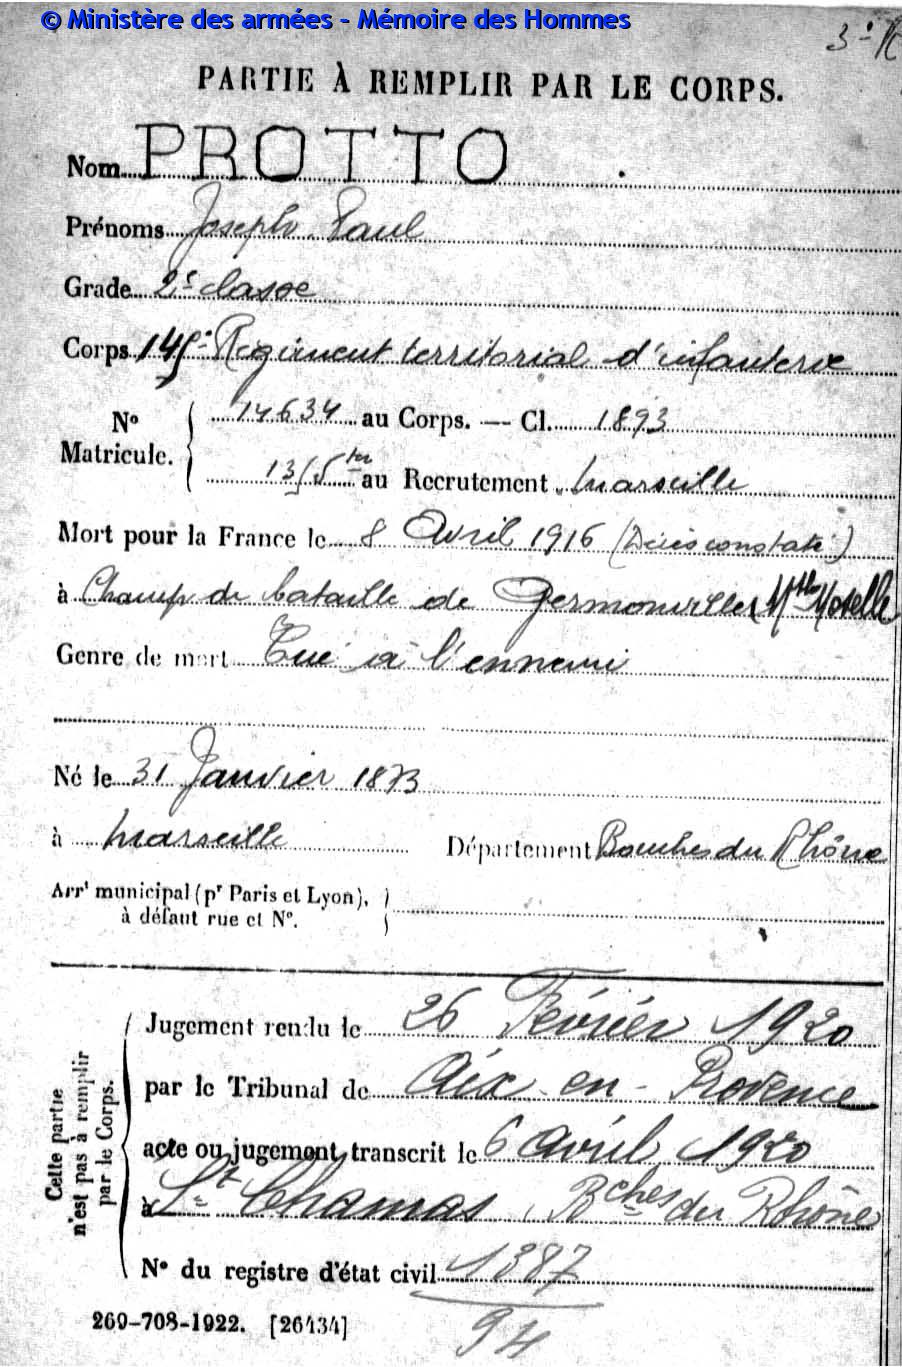 © Ministère des armées - Mémoire des Hommes
PARTIE À REMPLIR PAR LE CORPS.
Nom PROTTO
Prénoms Joseph Paul
Grade 2e classe
Corps 145e Régiment territorial d'infanterie
No Matricule. 14634 au Corps. — Cl. 1893
au Recrutement Marseille
Mort pour la France le 8 Avril 1916 (Décès constaté)
à Champ de bataille de Mthe Moselle
Genre de mort Tué à l'ennemi
Né le 31 Janvier 1873
à Marseille Département Bouches du Rhône
Arrt municipal (pr Paris et Lyon),
à défaut rue et No.
Cette partie
n'est pas à remplir
par le Corps.
Jugement rendu le 26 Février 1920
par le Tribunal de Aix-en-Provence
acte ou jugement transcrit le 6 avril 1920
à St Chamas, Bches du Rhône
No du registre d'état civil 1387
94
269-708-1922. [26434]